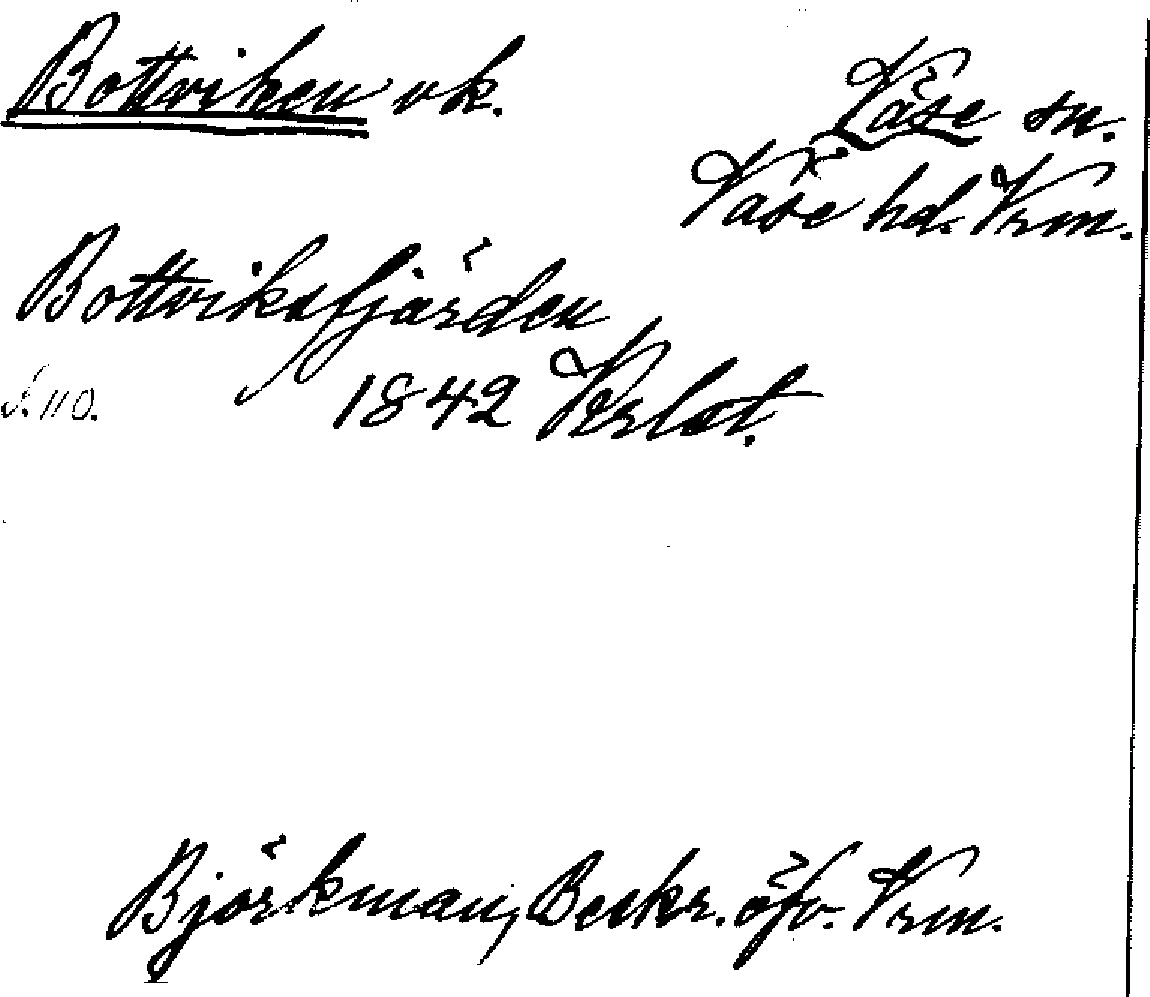 Bottviken vk.
Väse sn.
Väse hd. Vrm.
Bottviksfjärden
s. 110.
1842
Björkman, Beskr. öfv. Vrm.